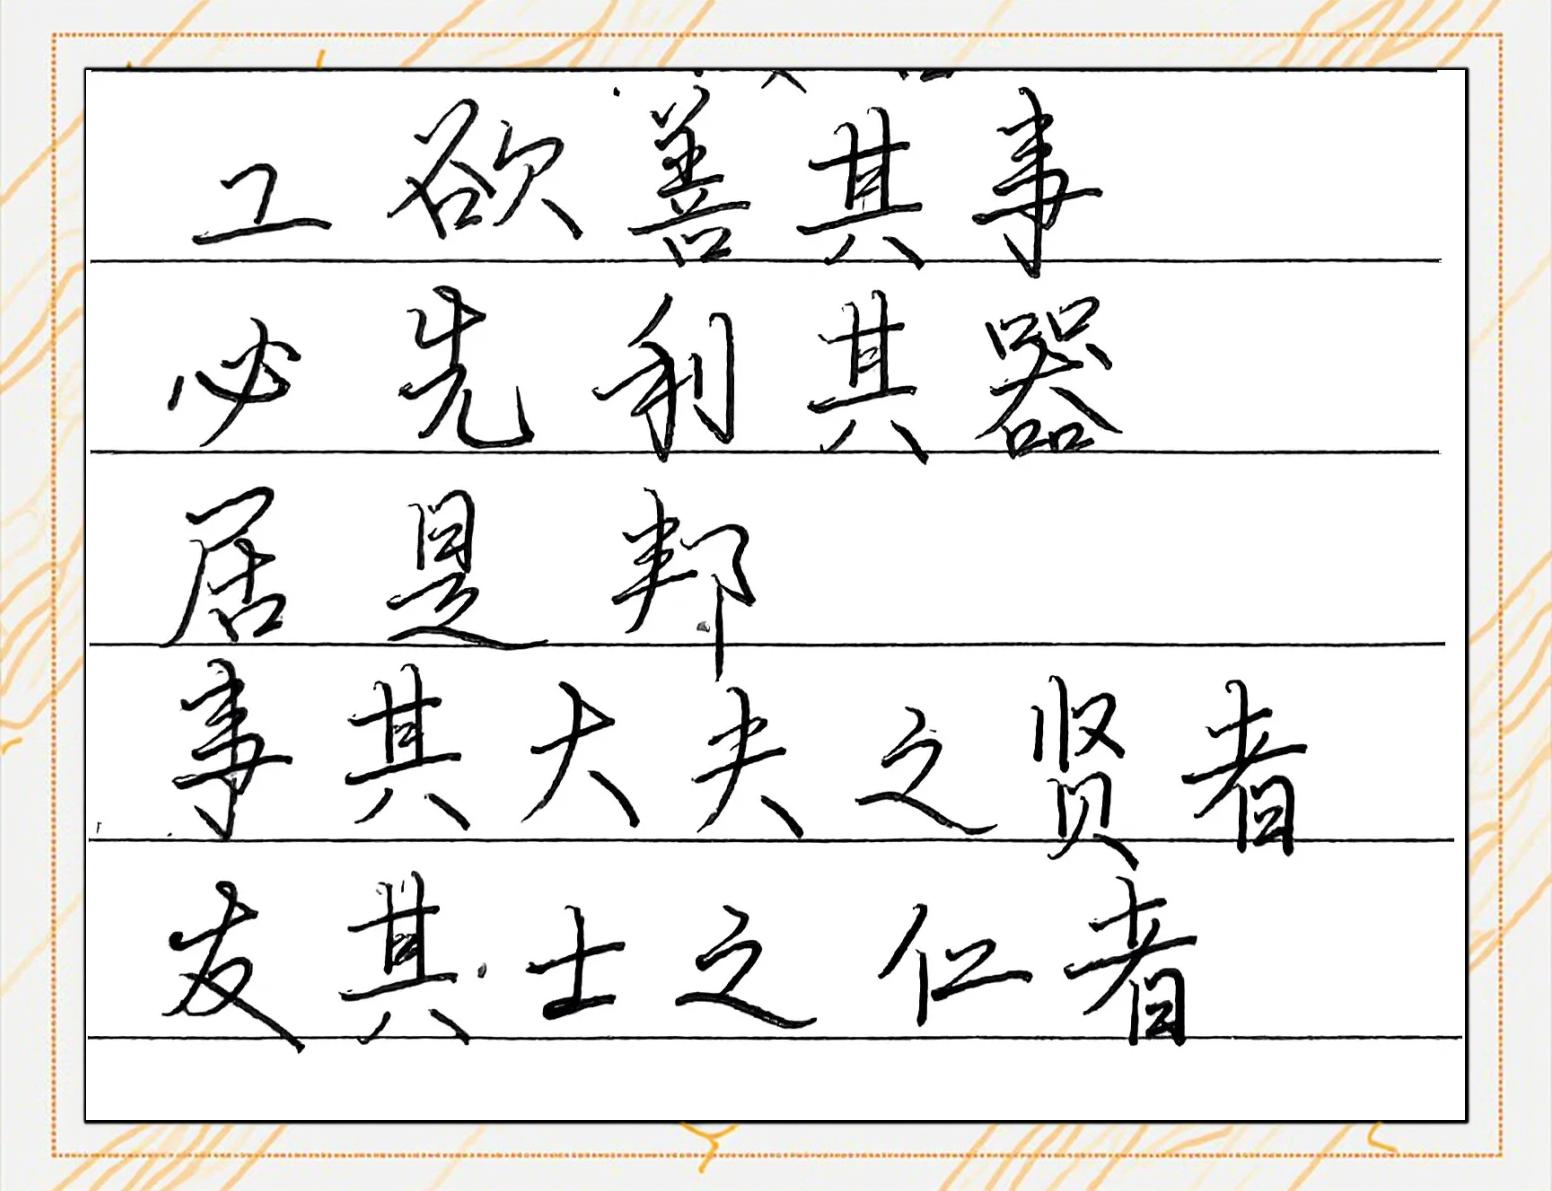 工欲善其事
必先利其器
居是邦
事其大夫之贤者
友其士之仁者